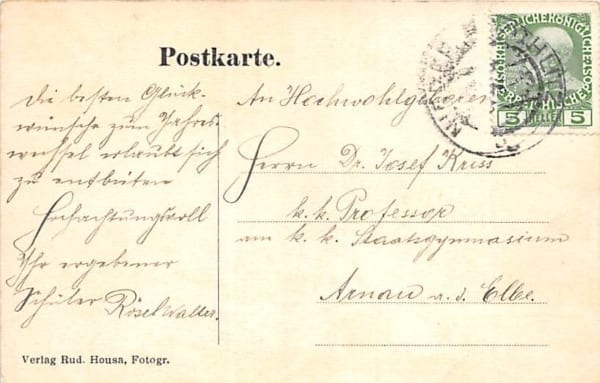 Postkarte.
Die besten Glück-
wünsche zum Jahres
wechsel erlaubt sich
zu entbieten
Hochachtungsvoll
Ihr ergebener
Schüler Rösel Walter.
An Hochwohlgeboren
Herrn Dr. Josef Kriss
k. k. Professor
am k. k. Staatsgymnasium
Arnau a. d. Elbe.
5 HELLER 5
Verlag Rud. Housa, Fotogr.